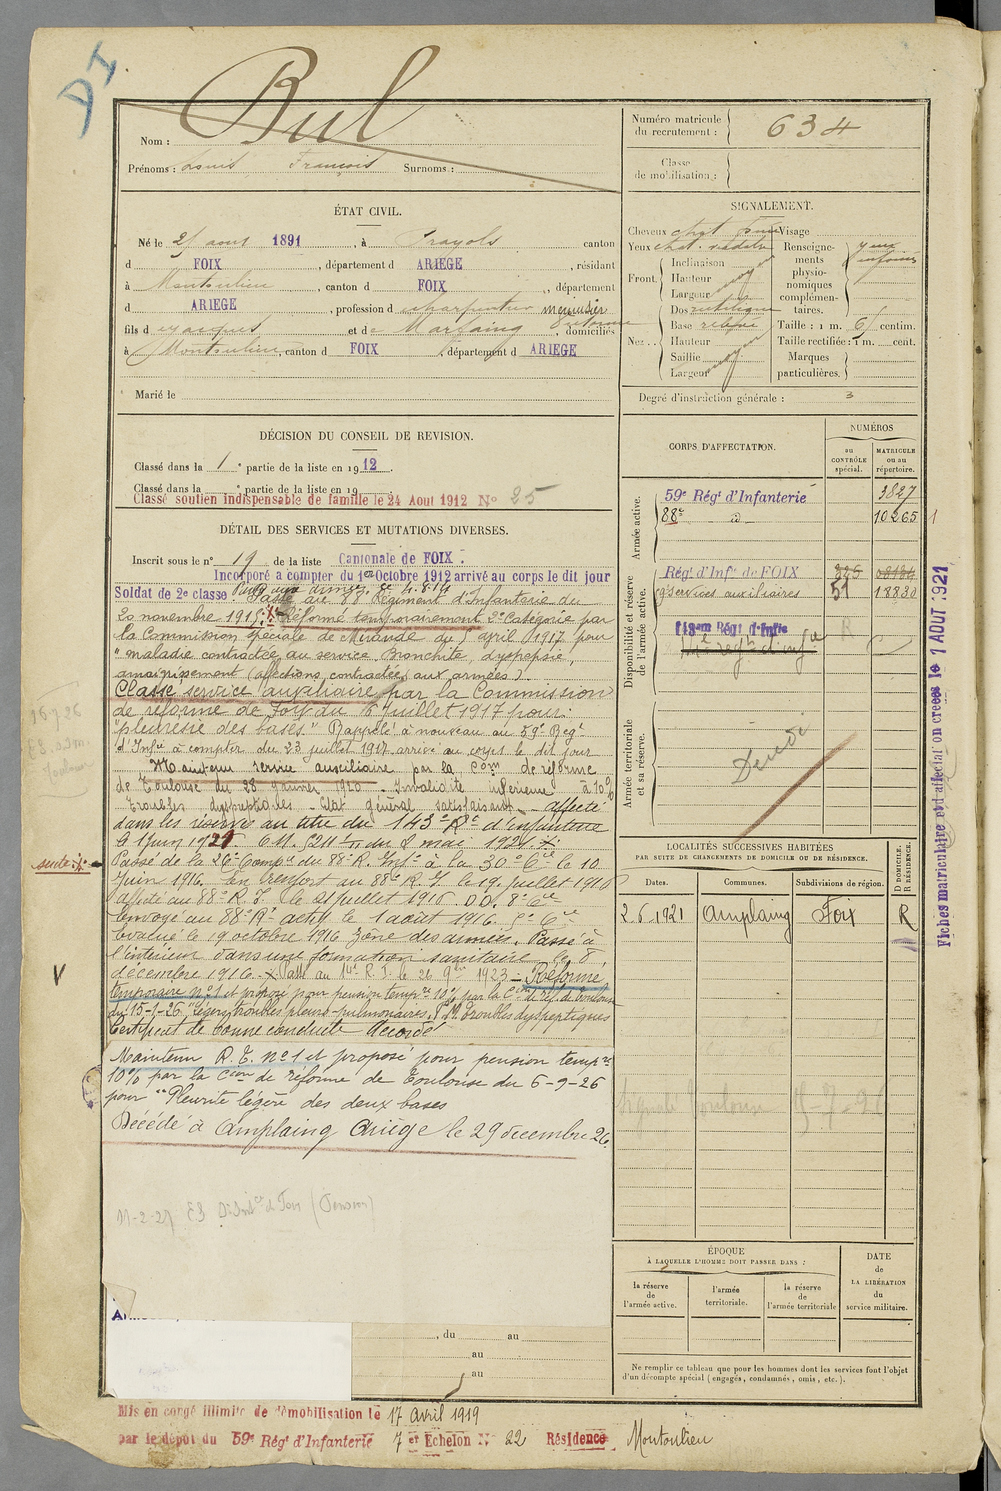 DI
Nom : Bul
Prénoms : Louis François Surnoms :
Numéro matricule
du recrutement : 634
Classe
de mobilisation :
ÉTAT CIVIL.
Né le 25 aout 1891, à Prayols canton
d FOIX, département d ARIEGE, résidant
à Montoulieu, canton d FOIX, département
d ARIEGE, profession d charpentier menuisier
fils d et de Marfaing domiciliés
à Montoulieu, canton d FOIX, département d ARIEGE
Marié le
SIGNALEMENT.
Cheveux chat. Visage
Yeux chat.
Front. Inclinaison
Hauteur moy
Largeur
Nez.. Dos rectiligne
Base relevé
Hauteur
Saillie moyen
Largeur
Renseigne-
ments
physio-
nomiques
complémen-
taires.
yeux
Taille : 1 m. 65 centim.
Taille rectifiée : 1 m. cent.
Marques
particulières.
Degré d'instruction générale : 3
DÉCISION DU CONSEIL DE REVISION.
Classé dans la 1e partie de la liste en 1912.
Classé dans la e partie de la liste en 19
Classé soutien indispensable de famille le 24 Aout 1912 N° 25
DÉTAIL DES SERVICES ET MUTATIONS DIVERSES.
Inscrit sous le n° 19 de la liste Cantonale de FOIX.
Incorporé a compter du 1er Octobre 1912 arrivé au corps le dit jour
Soldat de 2e classe
Passé au 88e Régiment d'Infanterie du
20 novembre 1915. X Réformé temporairement 2e Catégorie par
la Commission spéciale de Mirande du 5 avril 1917 pour
"maladie contractée au service, Bronchite, dyspepsie,
amaigrissement (affections contractées aux armées).
Classé service auxiliaire par la Commission
de réforme de Foix du 6 Juillet 1917 pour:
"pleurésie des bases." Rappelé à nouveau au 59e Régt
d'Infie à compter du 23 juillet 1917 arrivé au corps le dit jour
Maintenu service auxiliaire par la Com de réforme
de Toulouse du 28 janvier 1920 - Invalidité inférieure à 10%
Troubles dyspeptiques - Etat général satisfaisant - affecté
dans les réserves au titre du 143e Rt d'infanterie
le 1 juin 1921 du 2 mai 1921.
suite X
Passé de la 26e Compie du 88e R. Infie à la 30e Cie le 10
Juin 1916. En renfort au 88e R.I. le 19 juillet 1916
affecté au 88e R.I. le 21 juillet 1916. DD. 8e Cie
Envoyé au 88e Rt actif le 1 août 1916. 8e Cie
Evacué le 19 octobre 1916 zône des armées. Passé à
l'intérieur dans une formation sanitaire le 8
décembre 1916. X Passé au R.I. le 26 9bre 1923 - Réformé
temporaire n°1 et proposé pour pension tempre 10% par la Con de réf. de Toulouse
du 15-1-26 "légers troubles pleuro-pulmonaires, troubles dyspeptiques
Certificat de bonne conduite Accordé
Maintenu R.T. n°1 et proposé pour pension tempre
10% par la Cion de réforme de Toulouse du 6-9-26
pour "Pleurite légère des deux bases
Décédé à Amplaing Ariège le 29 décembre 26.
V
CORPS D'AFFECTATION.
NUMÉROS
au
CONTRÔLE
spécial.
MATRICULE
ou au
répertoire.
Armée active.
59e Régt d'Infanterie 3827
88e d 10265
Disponibilité et réserve
de l'armée active.
Régt d'Infie de FOIX
Services auxiliaires 51 12830
Régt d'Infie
Armée territoriale
et sa réserve.
Décédé
LOCALITÉS SUCCESSIVES HABITÉES
PAR SUITE DE CHANGEMENTS DE DOMICILE OU DE RÉSIDENCE.
Dates. Communes. Subdivisions de région.
D DOMICILE.
R RÉSIDENCE.
2.6.1921 Amplaing Foix R
Fiches matriculaire et d'affectation creees le 7 AOUT 1921
ÉPOQUE
À LAQUELLE L'HOMME DOIT PASSER DANS :
la réserve
de
l'armée active.
l'armée
territoriale.
la réserve
de
l'armée territoriale
DATE
de
LA LIBÉRATION
du
service militaire.
Ne remplir ce tableau que pour les hommes dont les services font l'objet
d'un décompte spécial (engagés, condamnés, omis, etc.).
, du au
au
au
Mis en congé illimité de démobilisation le 17 Avril 1919
par le dépôt du 59e Régt d'Infanterie 7 er Echelon N° 22 Résidence Montoulieu